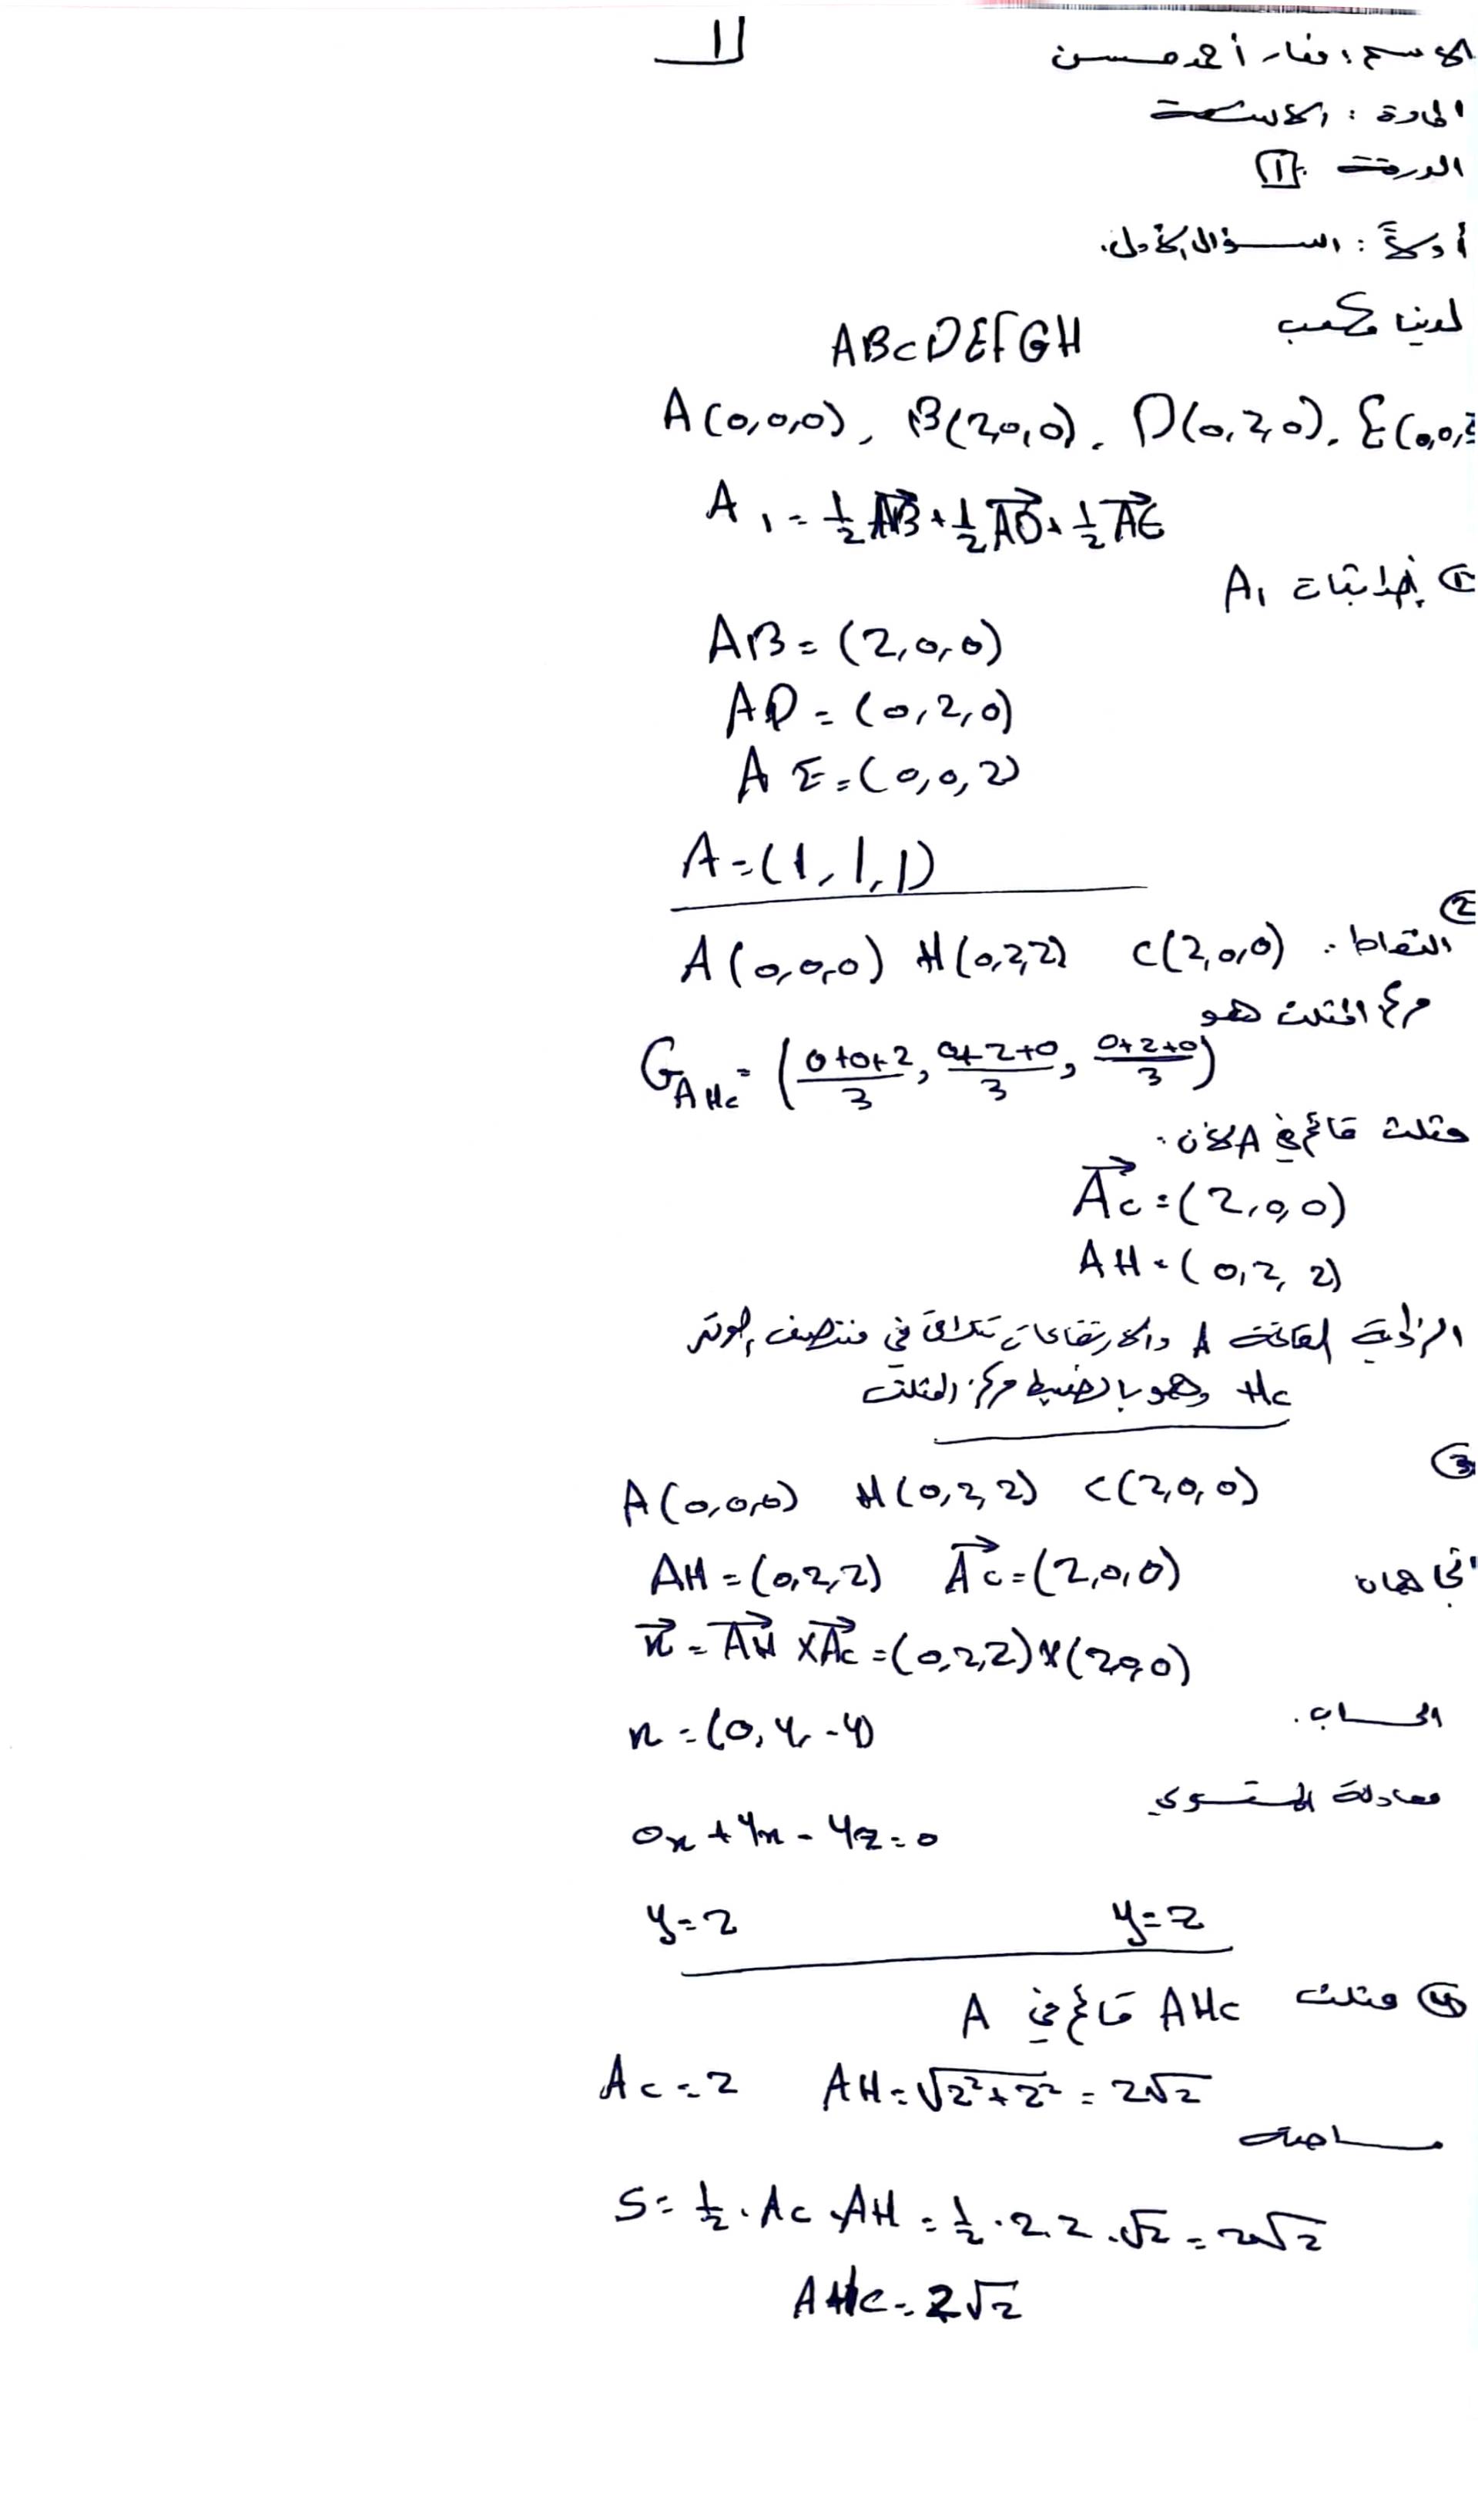 11
الاسم: منار أحمد حسن
المادة: الاشعة
الورقة 1
أولاً: السؤال الأول.
لدينا مكعب ABCDEFGH
A(0,0,0), B(2,0,0), D(0,2,0), E(0,0,2
A₁ = ½AB + ½AD + ½AE
① إحداثيات A₁
AB = (2,0,0)
AD = (0,2,0)
AE = (0,0,2)
A = (1,1,1)
②
النقاط: A(0,0,0) H(0,2,2) C(2,0,0)
مركز المثلث هو
G_AHC = (0+0+2/3, 0+2+0/3, 0+2+0/3)
مثلث قائم في A لأن.
AC = (2,0,0)
AH = (0,2,2)
الزاوية القائمة A والارتفاعات تتلاقى في منتصف الوتر
HC وهو بالضبط مركز المثلث
③
A(0,0,0) H(0,2,2) C(2,0,0)
AH = (0,2,2) AC = (2,0,0)
n = AH × AC = (0,2,2) × (2,0,0)
n = (0,4,-4)
الحساب.
معادلة المستوي
0x + 4x - 4z = 0
y=2 y=z
④ مثلث AHC قائم في A
AC = 2 AH = √2²+2² = 2√2
مساحة
S = ½ · AC · AH = ½ · 2.2 · √2 = 2√2
AHC = 2√2